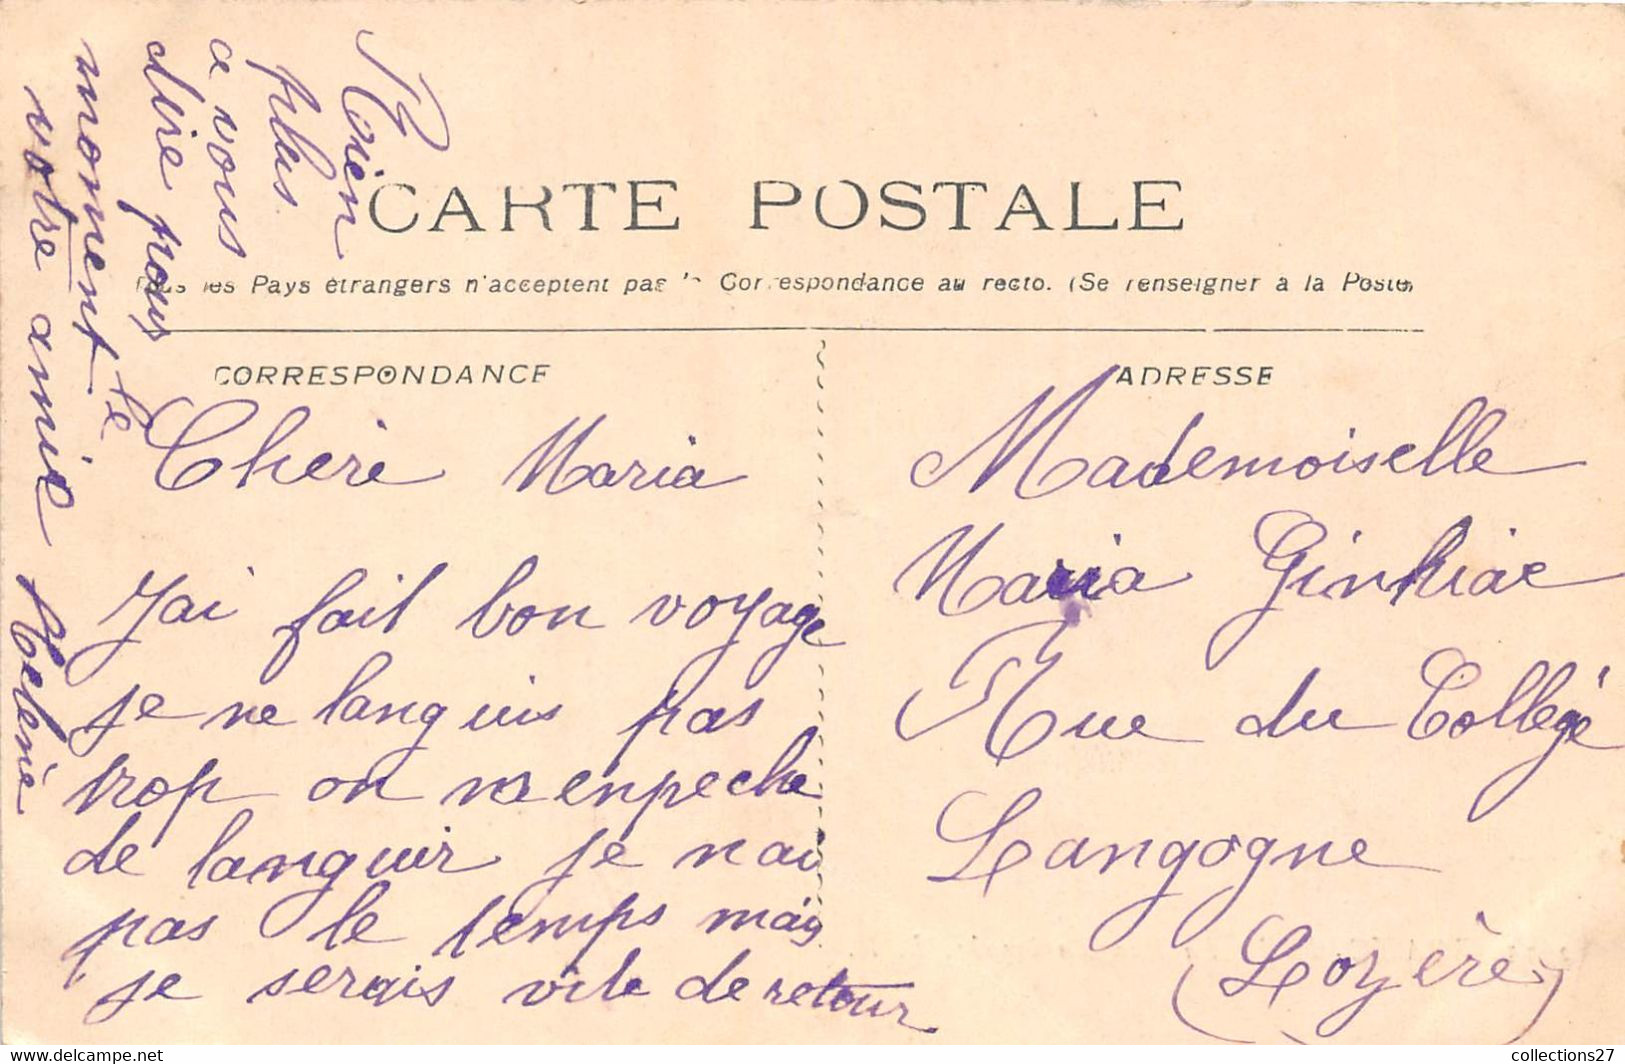 CARTE POSTALE
Tous les Pays étrangers n'acceptent pas la Correspondance au recto. (Se renseigner à la Poste)
CORRESPONDANCE
Chère Maria
J'ai fait bon voyage
je ne languis pas
trop on m'enpeche
de languir je n'ai
pas le temps mais
je serais vite de retour
Rien
plus
a vous
dire pour
le
moment
votre amie Helene
ADRESSE
Mademoiselle
Maria
Rue du Collège
Langogne
(Lozère)
collections27